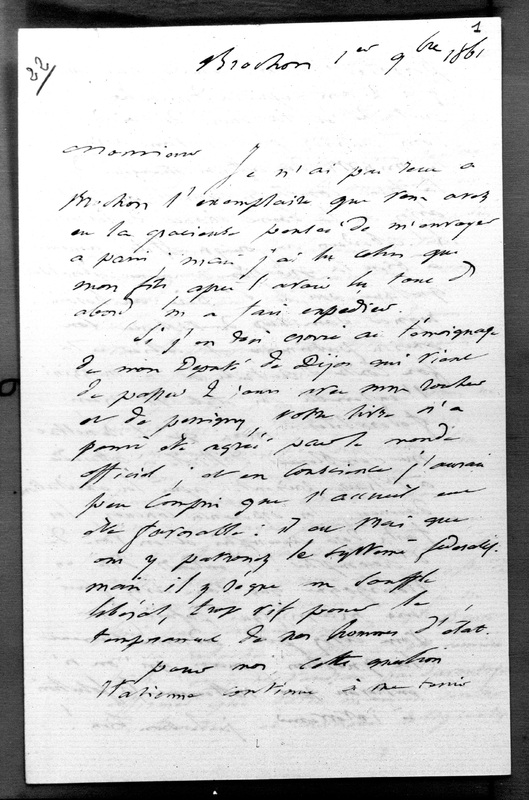 1
22/
Brochon 1er 9bre 1861
Monsieur Je n'ai pas reçu a
Brochon l'exemplaire que vous avez
eu la gracieuse pensée de m'envoyer
a paris mais j'ai lu celui que
mon fils, après l'avoir lu tout d'
abord m'a fait expedier.
Si j'en dois croire au témoignage
de mon Deputé de Dijon qui vient
de passer 2 jours avec
et de persigny, votre livre n'a
été agréé par le monde
officiel : et en conscience j'aurai
peu compris que l'accueil eut
été favorable : il est vrai que
on y patronez le système federatif.
mais il y règne un souffle
liberal, trop vif pour le
temperament de nos hommes d'état.
pour moi cette question
Italienne continue à me tenir